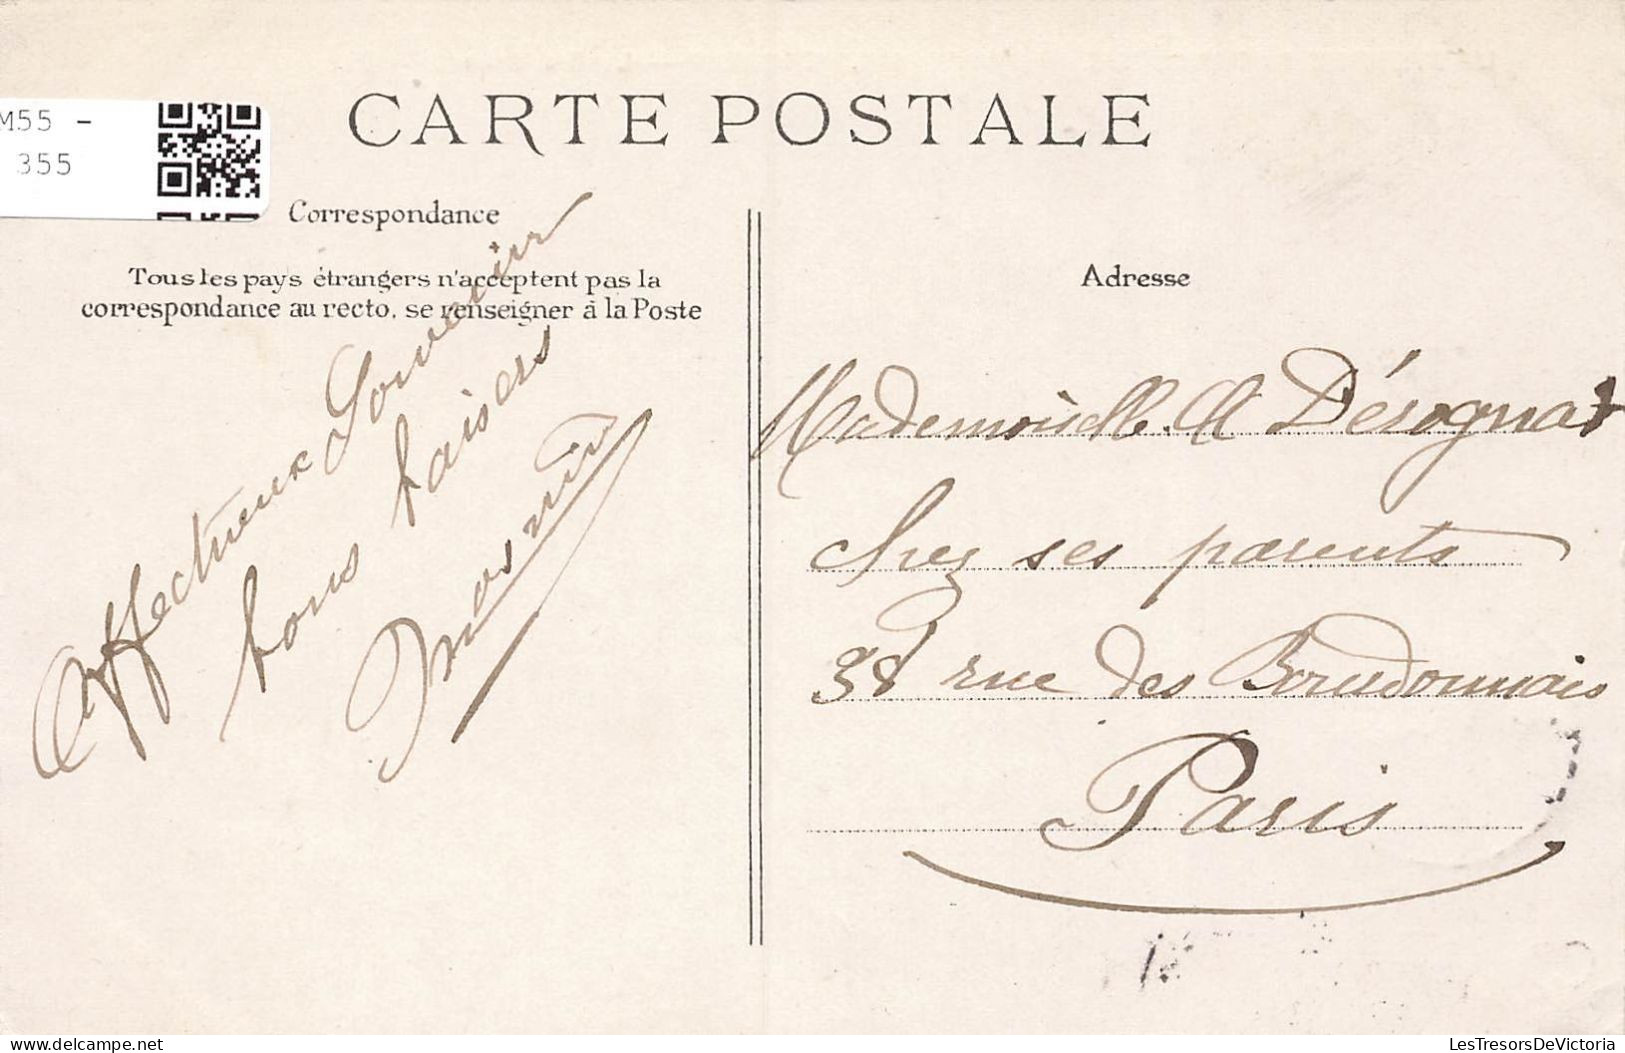 M55 -
355
CARTE POSTALE
Correspondance
Tous les pays étrangers n'acceptent pas la
correspondance au recto, se renseigner à la Poste
Affectueux Souvenir
bons baisers
Adresse
Mademoiselle M Dérognat
Chez ses parents
38 rue des Bourdonnais
Paris
delcampe.net
LesTresorsDeVictoria